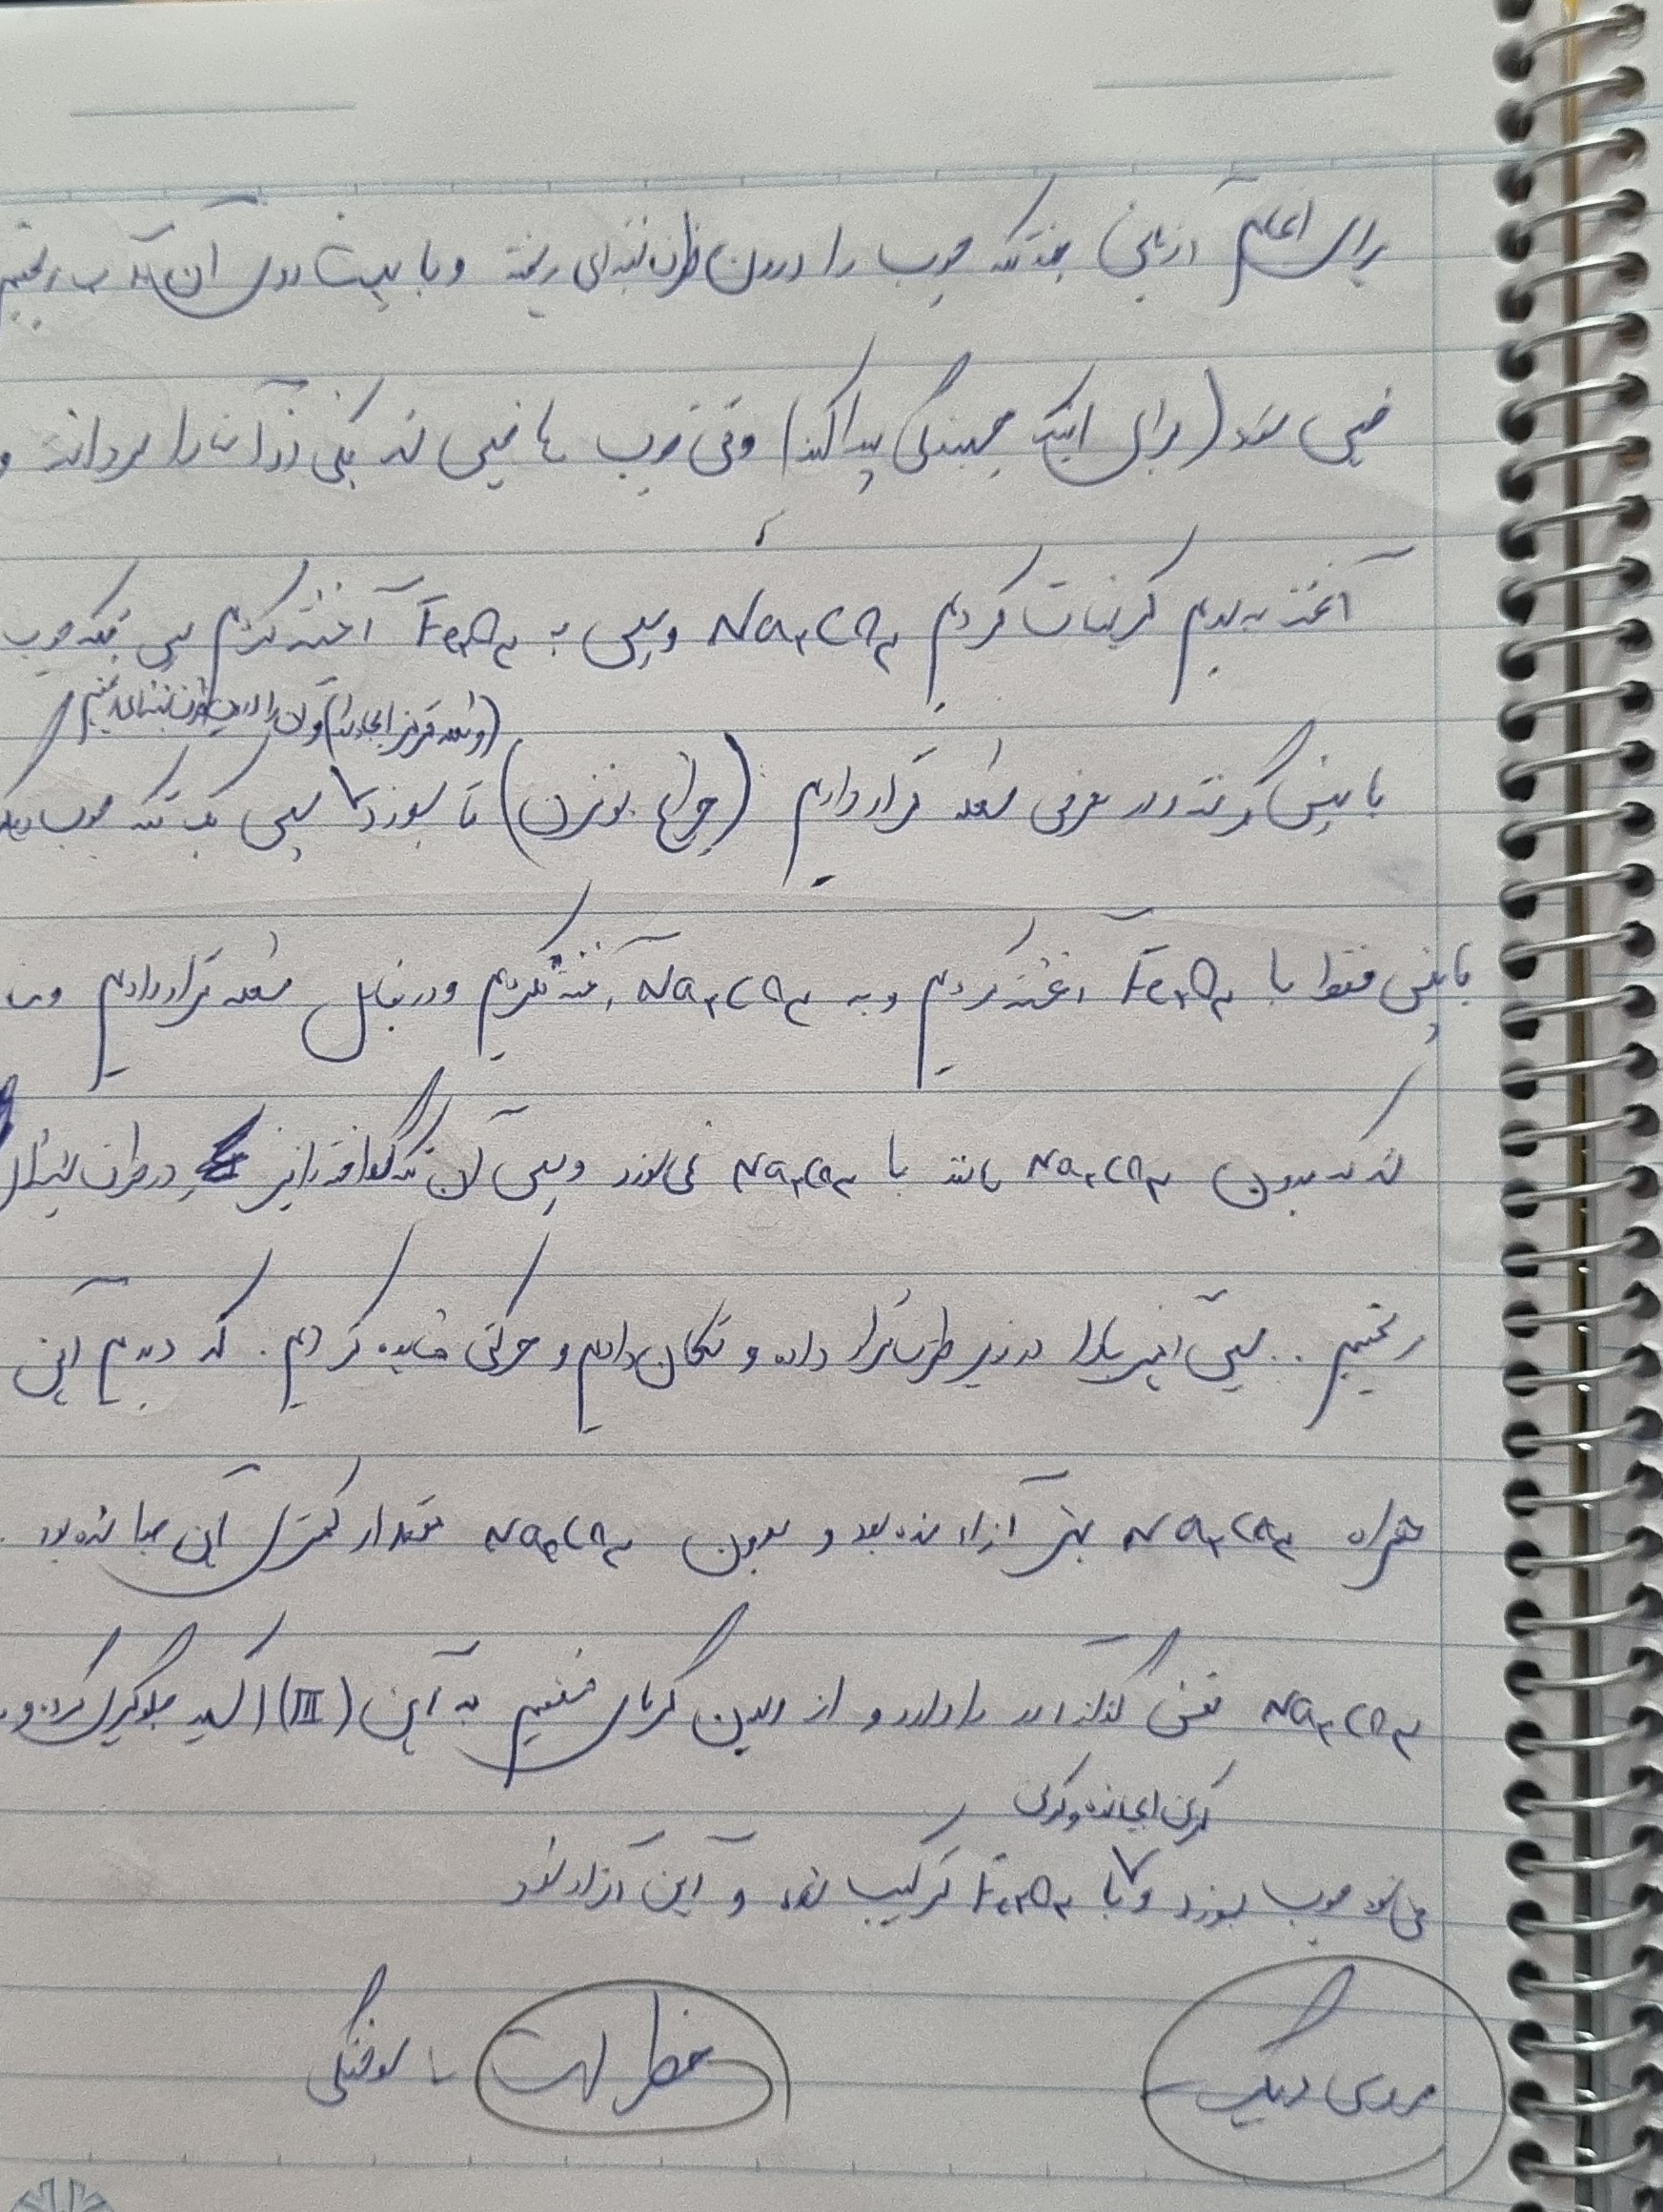 برای انجام آزمایش چند تکه چوب را درون ظرف شیشه‌ای ریخته و با پیپت روی آن آب ریختیم
خیس شود (برای اینکه چسبندگی پیدا کند) وقتی چوب ها خیس شد یکی از آنها را برداشته و
آغشته به سدیم کربنات کردیم Na₂CO₃ و سپس به Fe₂O₃ آغشته کردیم سپس تکه چوب
(و شعله قرمز ایجاد شد) و آن را درون ظرف شیشه‌ای
با پنس گرفته و در معرض شعله قرار دادیم (چراغ بونزن) تا بسوزد سپس یک تکه چوب دیگر
با پنس فقط با Fe₂O₃ آغشته کردیم و به Na₂CO₃ آغشته نکردیم و در مقابل شعله قرار دادیم
شد که بدون Na₂CO₃ مانند با Na₂CO₃ نمی‌سوزد و سپس آن تکه را نیز در ظرف
ریختیم .. سپس آهنربا را در زیر ظرف قرار داده و تکان دادیم و حرکتی مشاهده کردیم . که دیدیم آهن
همراه Na₂CO₃ بهتر آزاد شده بود و بدون Na₂CO₃ مقدار کمتری آهن جدا شده بود .
Na₂CO₃ نقش را دارد و از رسیدن گرمای مستقیم به آهن (III) اکسید جلوگیری کرده و
کربن ایجاد شده و کربن
می شود چوب بسوزد و با Fe₂O₃ ترکیب شود و آهن آزاد شود
خطر
سوختگی